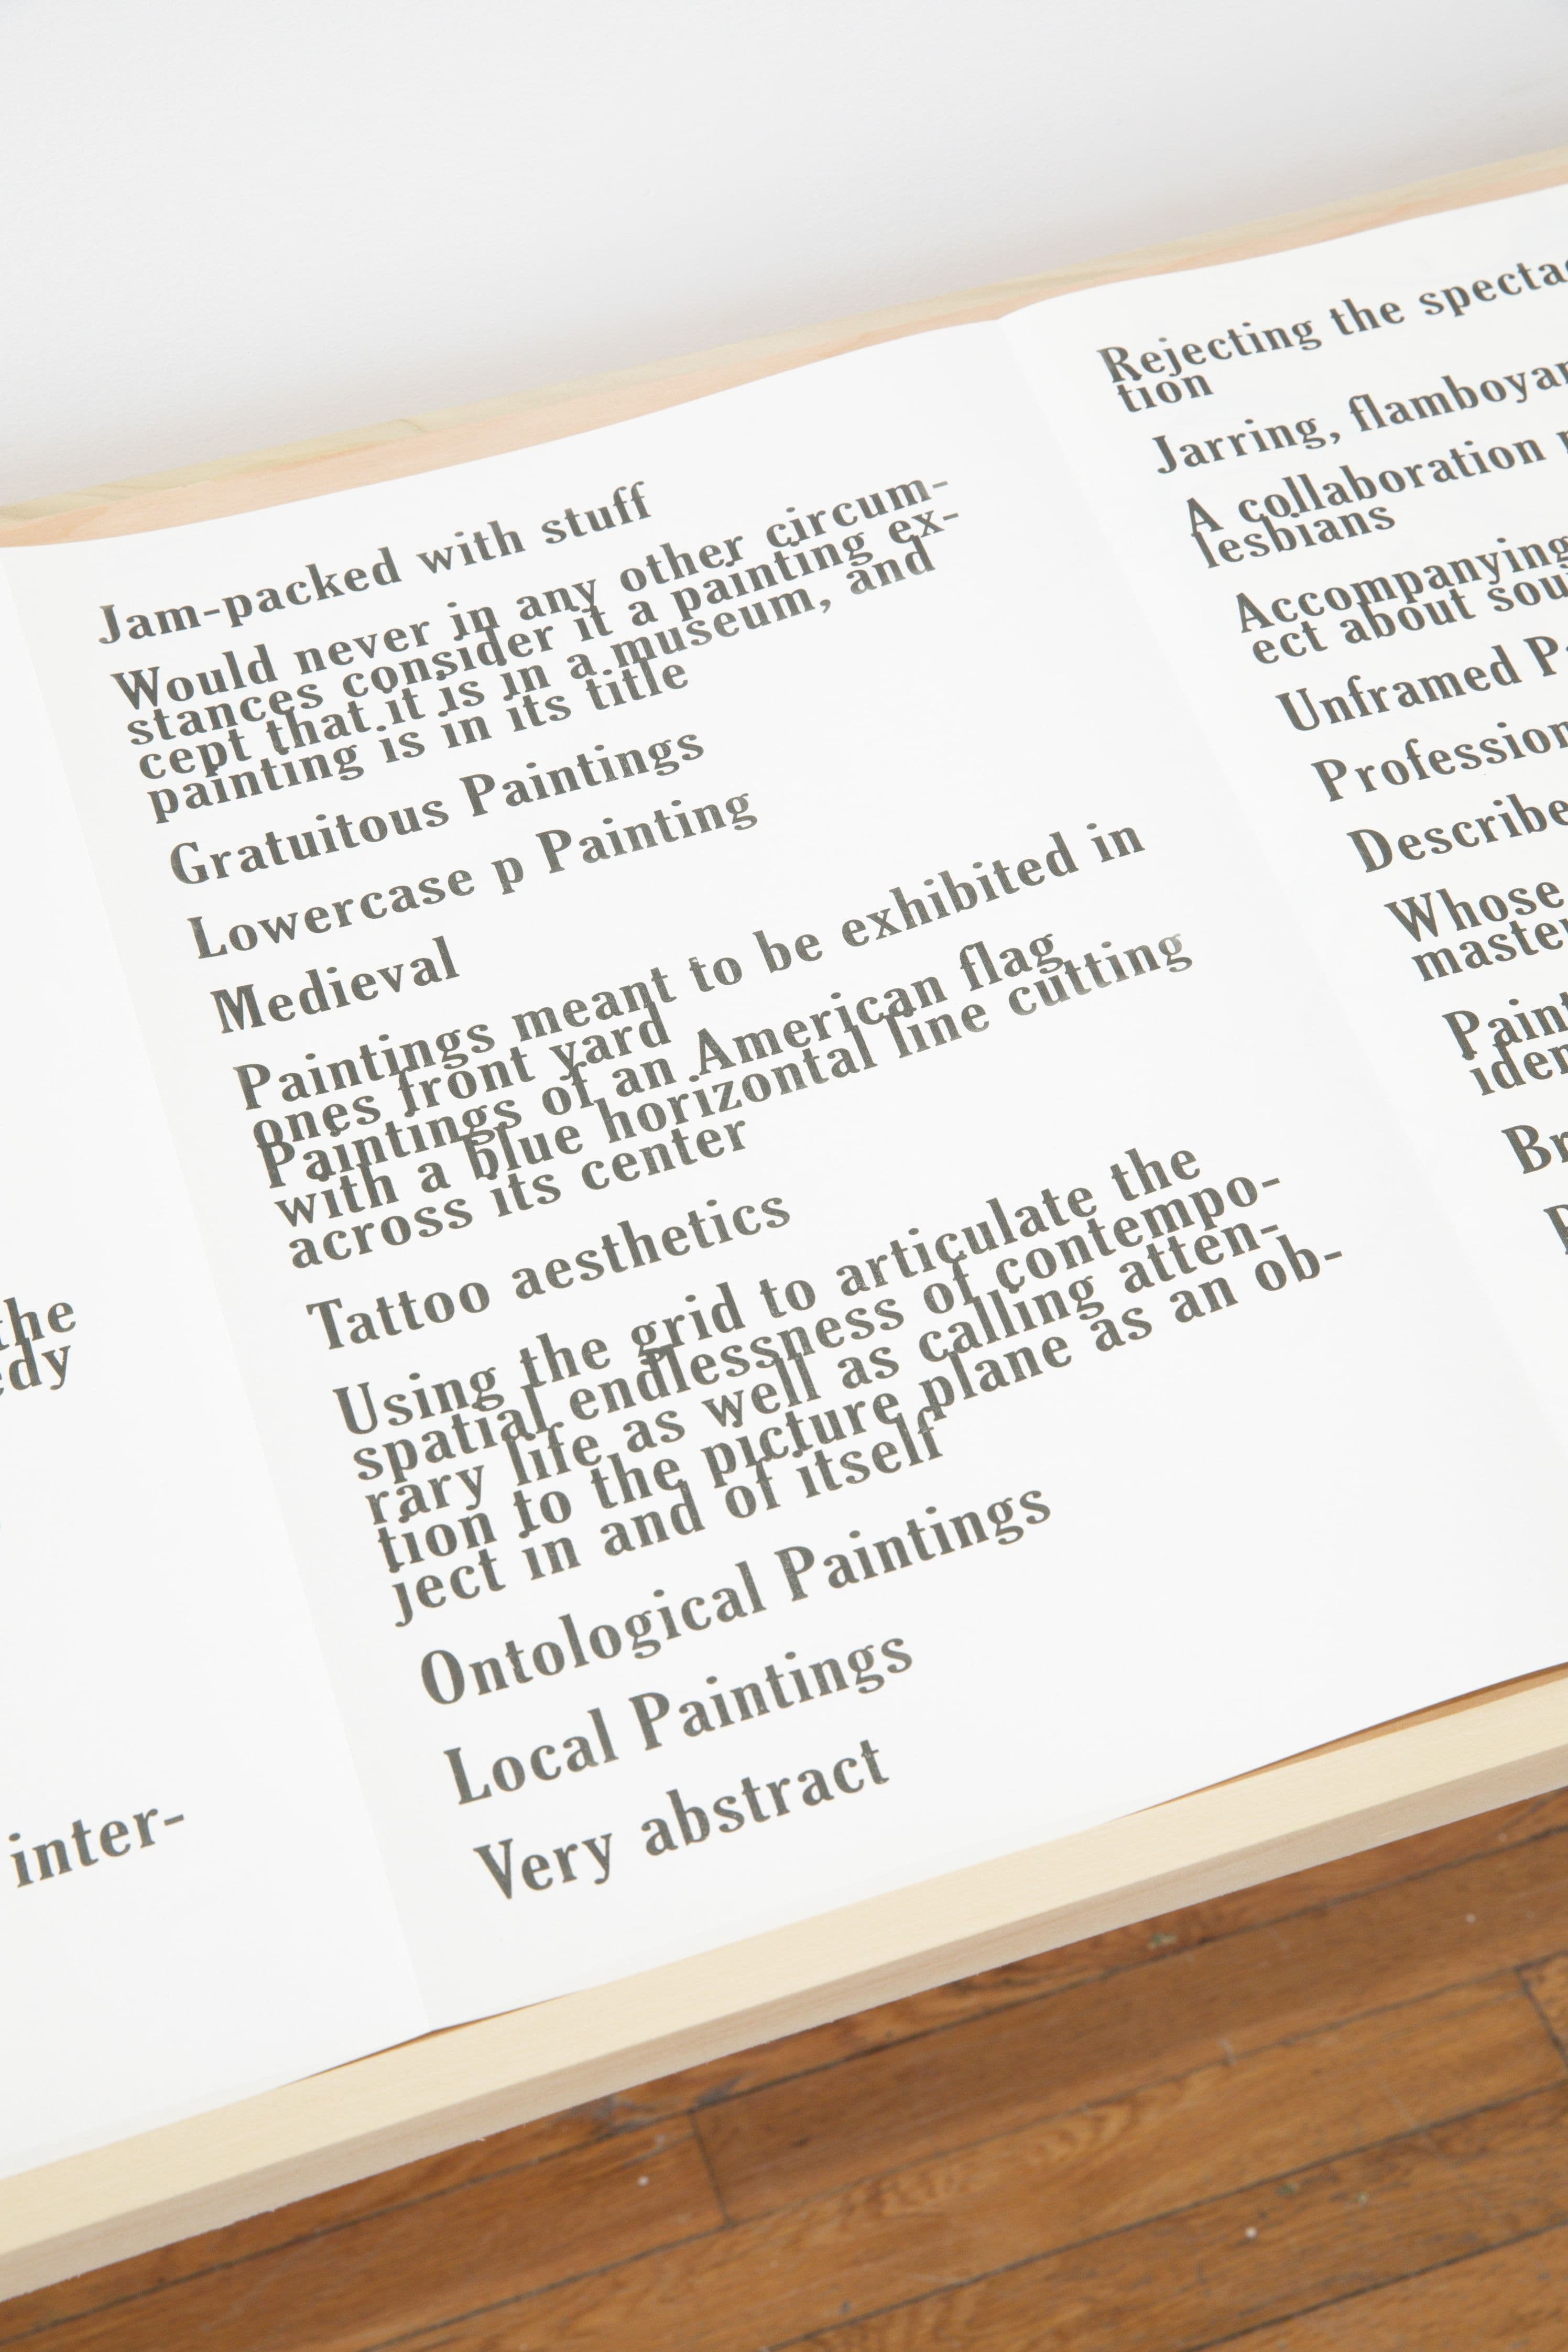 the
edy
inter-
Jam-packed with stuff
Would never in any other circum-
stances consider it a painting ex-
cept that it is in a museum, and
painting is in its title
Gratuitous Paintings
Lowercase p Painting
Medieval
Paintings meant to be exhibited in
ones front yard
Paintings of an American flag
with a blue horizontal line cutting
across its center
Tattoo aesthetics
Using the grid to articulate the
spatial endlessness of contempo-
rary life as well as calling atten-
tion to the picture plane as an ob-
ject in and of itself
Ontological Paintings
Local Paintings
Very abstract
Rejecting the specta
tion
Jarring, flamboya
A collaboration
lesbians
Accompanying
ect about sou
Unframed P
Profession
Describe
Whose
master
Paint
iden
Br